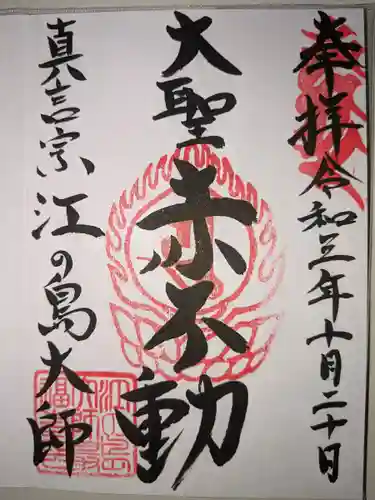 奉拝 令和三年十月二十日
大聖赤不動
真言宗江の島大師